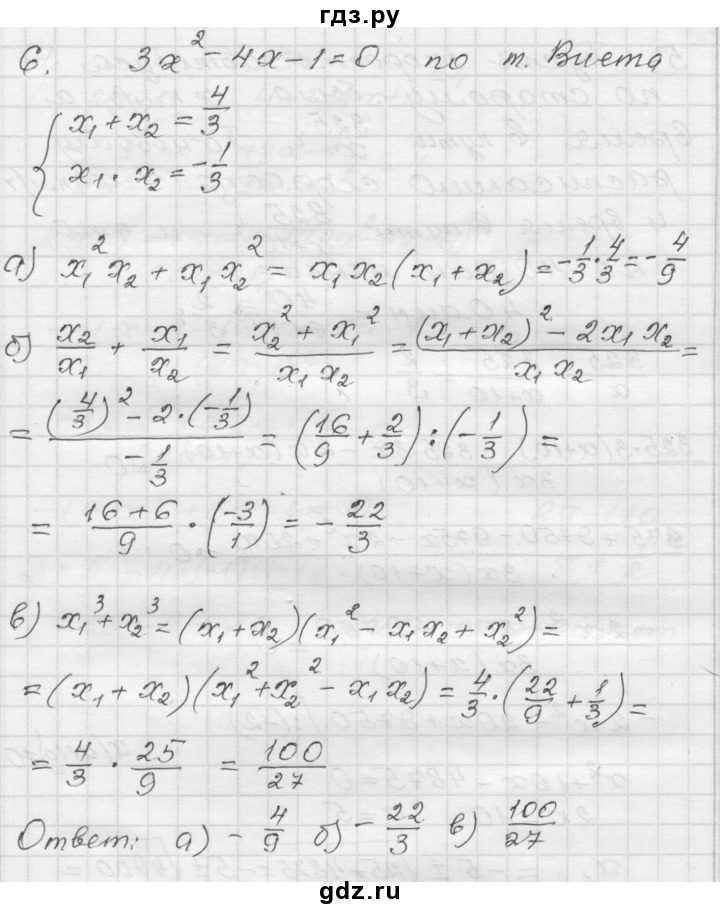 гдз.ру
6. 3x² - 4x - 1 = 0 по т. Виета
{ x₁ + x₂ = 4/3
x₁ · x₂ = -1/3
а) x₁²x₂ + x₁x₂² = x₁x₂(x₁ + x₂) = -1/3 · 4/3 = -4/9
б) x₂/x₁ + x₁/x₂ = (x₂² + x₁²)/(x₁x₂) = ((x₁ + x₂)² - 2x₁x₂)/(x₁x₂) =
= ((4/3)² - 2·(-1/3))/(-1/3) = (16/9 + 2/3) : (-1/3) =
= (16+6)/9 · (-3/1) = -22/3
в) x₁³ + x₂³ = (x₁ + x₂)(x₁² - x₁x₂ + x₂²) =
= (x₁ + x₂)(x₁² + x₂² - x₁x₂) = 4/3 · (22/9 + 1/3) =
= 4/3 · 25/9 = 100/27
Ответ: а) -4/9 б) -22/3 в) 100/27
gdz.ru